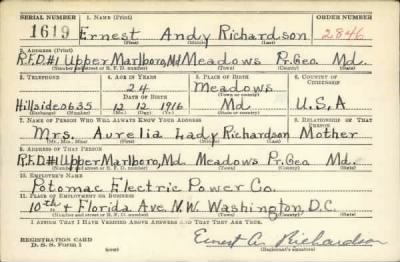 SERIAL NUMBER 1. NAME (Print) ORDER NUMBER
1619 Ernest Andy Richardson 2846
(First) (Middle) (Last)
2. ADDRESS (Print)
R.F.D.#1 Upper Marlboro, Md Meadows Pr. Geo. Md.
(Number and street or R. F. D. number) (Town) (County) (State)
3. TELEPHONE 4. AGE IN YEARS 5. PLACE OF BIRTH 6. COUNTRY OF CITIZENSHIP
24 Meadows
DATE OF BIRTH (Town or county)
Hillside 0635 12 12 1916 Md U.S.A
(Exchange) (Number) (Mo.) (Day) (Yr.) (State or country)
7. NAME OF PERSON WHO WILL ALWAYS KNOW YOUR ADDRESS 8. RELATIONSHIP OF THAT PERSON
Mrs. Aurelia Lady Richardson Mother
(Mr., Mrs., Miss) (First) (Middle) (Last)
9. ADDRESS OF THAT PERSON
R.F.D.#1 Upper Marlboro, Md. Meadows Pr. Geo Md.
(Number and street or R. F. D. number) (Town) (County) (State)
10. EMPLOYER'S NAME
Potomac Electric Power Co.
11. PLACE OF EMPLOYMENT OR BUSINESS
10th & Florida Ave. N.W. Washington, D.C.
(Number and street or R. F. D. number) (Town) (County) (State)
I AFFIRM THAT I HAVE VERIFIED ABOVE ANSWERS AND THAT THEY ARE TRUE.
REGISTRATION CARD
D. S. S. FORM 1 (over) Ernest A. Richardson
(Registrant's signature)